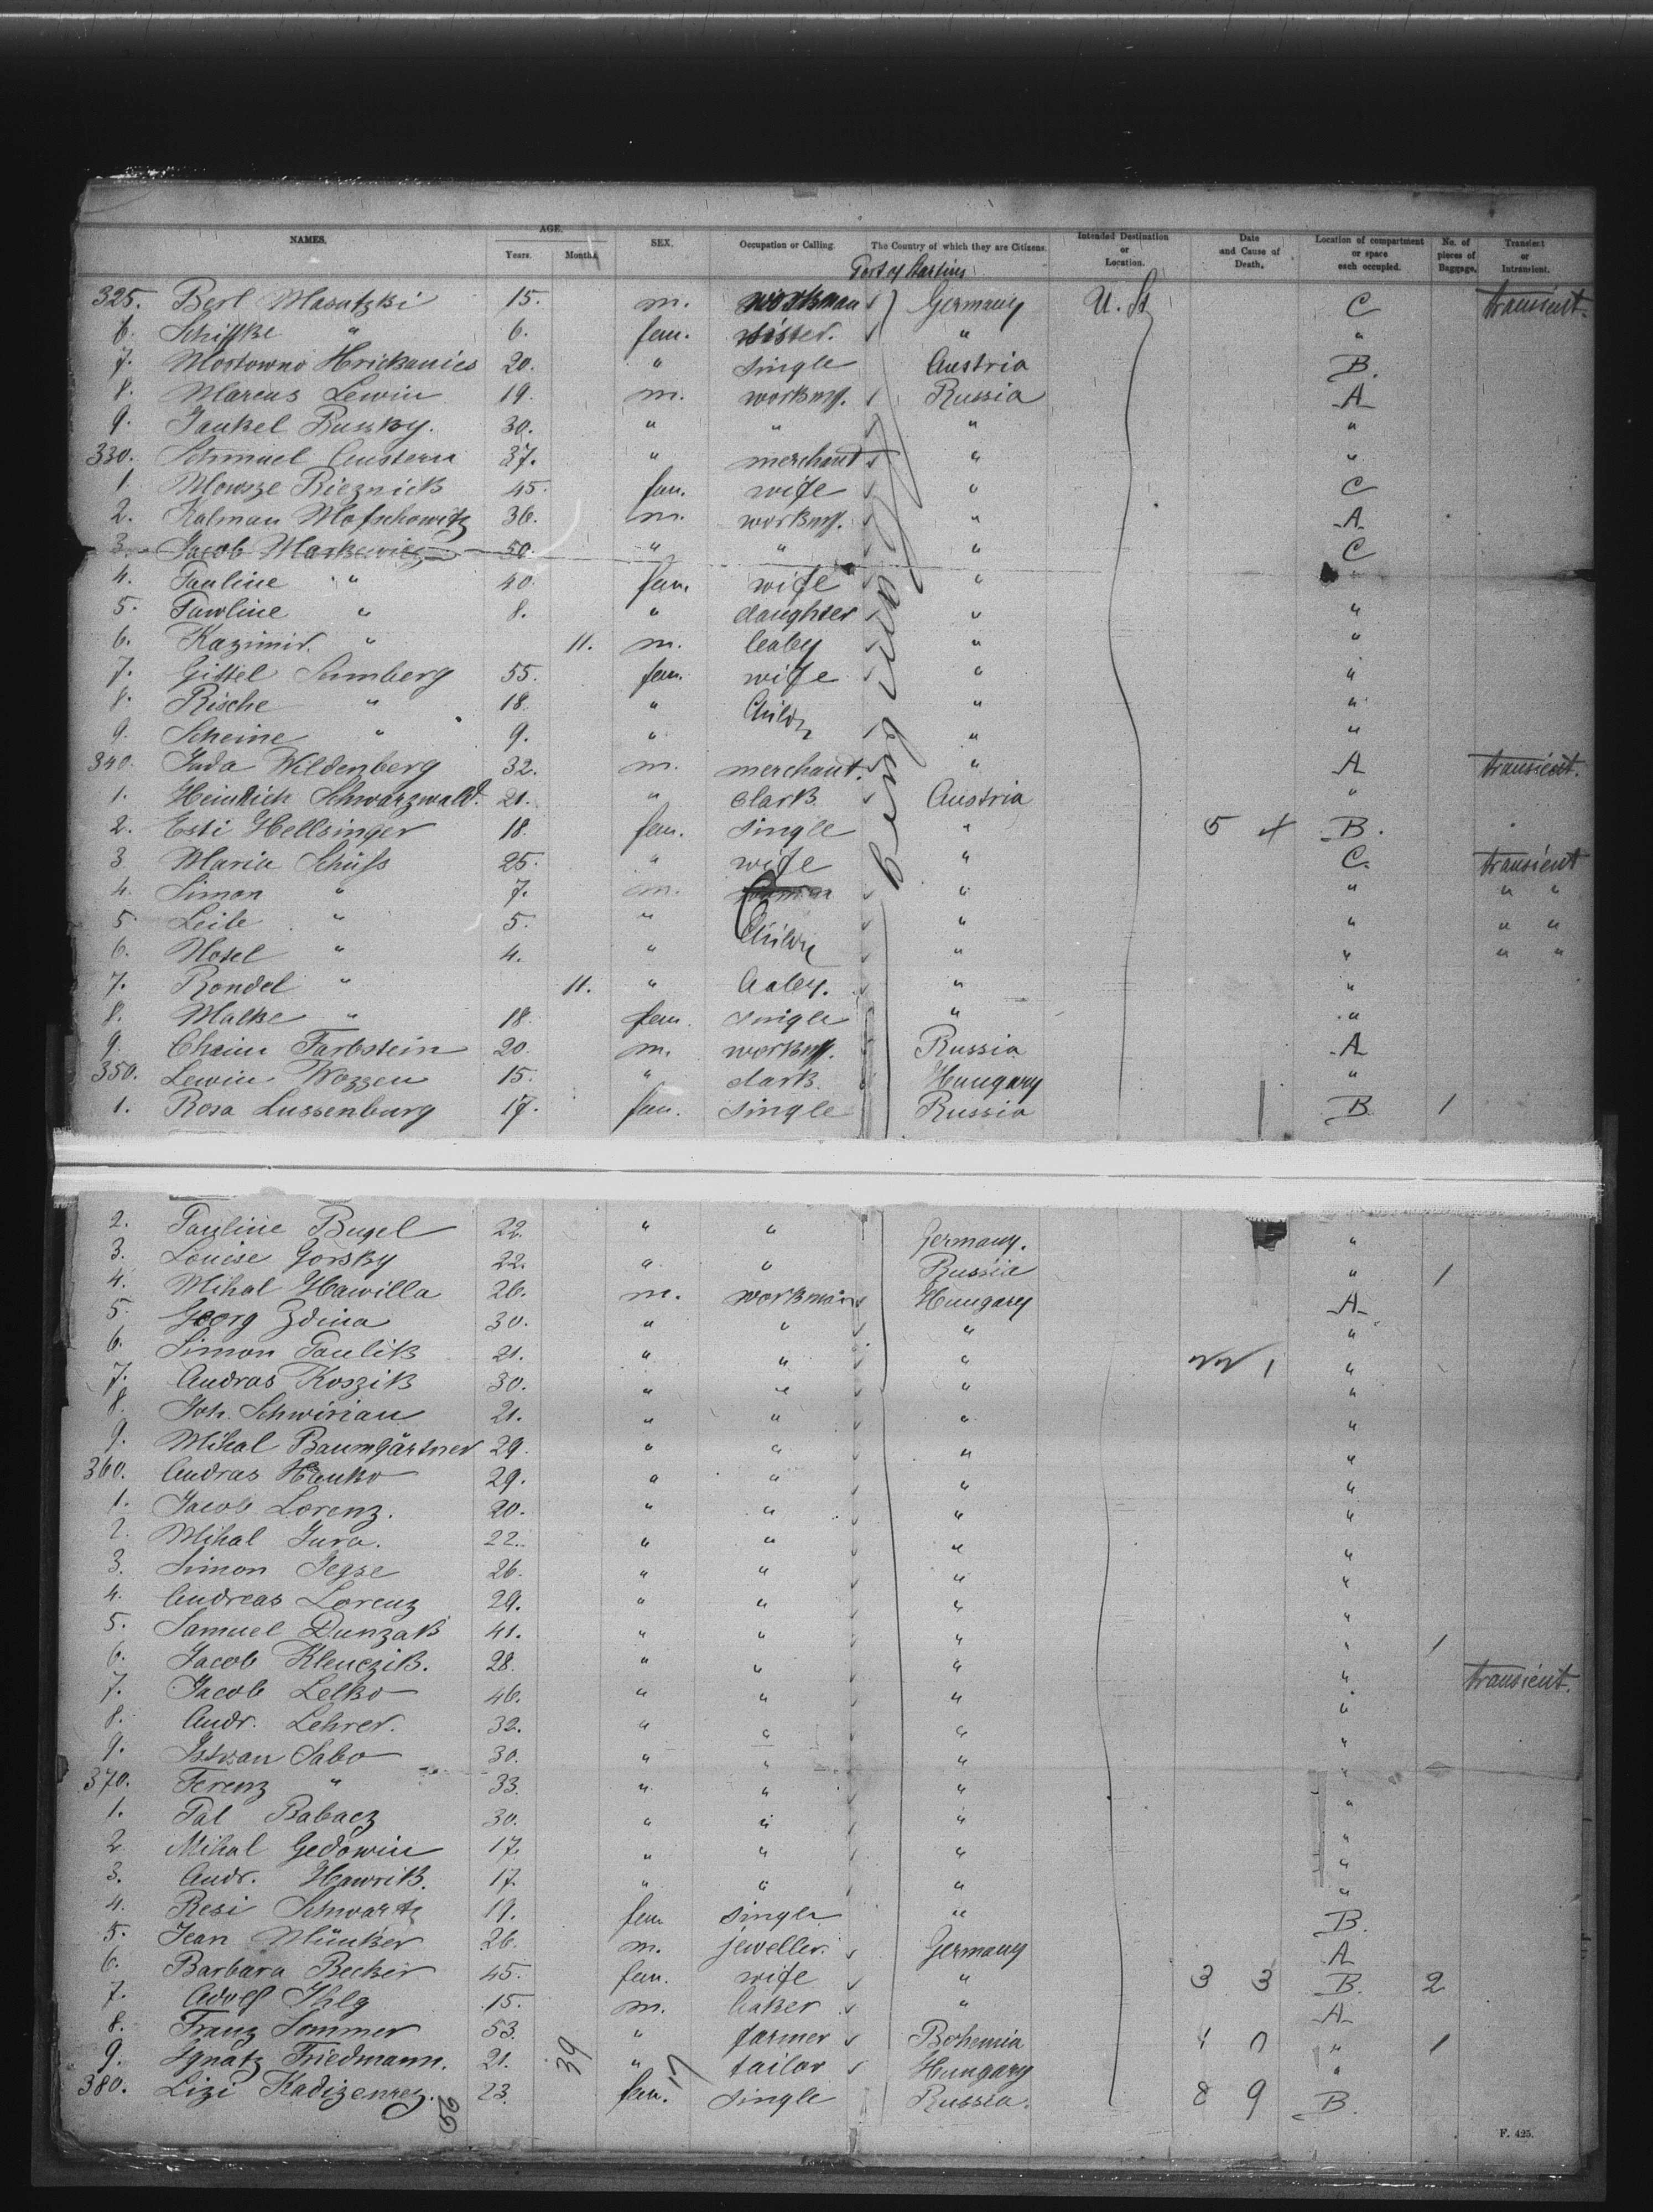 NAMES. AGE. Years. Months. SEX. Occupation or Calling. The Country of which they are Citizens. Intended Destination or Location. Date and Cause of Death. Location of compartment or space each occupied. No. of pieces of Baggage. Transient or Intransient.
Port of
325. Berl Masutzki 15. m. workman Germany U. St. C transient.
6. Schiffke " 6. fem. sister. " "
7. Hrickanics 20. " single Austria B.
8. Marcus Lewin 19. m. workmn. Russia A
9. Jankel 30. " " " "
330. Schmuel Austern 37. " merchant " "
1. Mowsze Rieznick 45. fem. wife " C
2. Kalman 36. m. workmn. " A
3. Jacob Markewicz 50. " " " C
4. Pauline " 40. fem. wife " "
5. Pawline " 8. " daughter " "
6. Kazimir. " 11. m. baby " "
7. Gittel Sumberg 55. fem. wife " "
8. Rische " 18. " Childn " "
9. Scheine " 9. " " "
340. Juda Wildenberg 32. m. merchant. " A transient.
1. Heinrich Schwarzwald. 21. " clark. Austria "
2. Esti Hellsinger 18. fem. single " 5 4 B.
3 Maria Schüss 25. " wife " C. transient
4. Simon " 7. m. " " " "
5. Leib " 5. " Childn " " " "
6. Mosel " 4. " " " " "
7. Rondel " 11. " baby. " "
8. Malke " 18. fem. single " "
9. Chaim Farbstein 20. m. workmn. Russia A
350. Lewin Wozzen 15. " clark. Hungary "
1. Rosa Lussenburg 17. fem. single Russia B. 1
2. Pauline Bugel 22. " " Germany. "
3. Louise Gorsky 22. " " Russia " 1
4. Mihal Hawilla 26. m. workman Hungary A
5. Georg Zdina 30. " " " "
6. Simon Paulik 21. " " " 1 "
7. Andras Koszik 30. " " " "
8. Joh. Schwirian 21. " " " "
9. Mihal Baumgärtner 29. " " " "
360. Andras Hanko 29. " " " "
1. Jacob Lorenz. 20. " " " "
2. Mihal Jura. 22. " " " "
3. Simon Jegse 26. " " " "
4. Andreas Lorenz 29. " " " "
5. Samuel Dunzak 41. " " " " 1
6. Jacob Klenczik. 28. " " " " transient.
7. Jacob Lelko 46. " " " "
8. Andr. Lehrer. 32. " " " "
9. Istvan Sabo 30. " " " "
370. Ferenz " 33. " " " "
1. Pal Babacz 30. " " " "
2 Mihal Gedowin 17. " " " "
3. Andr. Hawrik. 17. " " " "
4. Resi Schwartz 19. fem single " B.
5. Jean Münker 26. m. jeweller. Germany A
6. Barbara Becker 45. fem. wife " 3 3 B. 2
7. Adolf Ihlg 15. m. baker " A
8. Franz Sommer 53. " farmer Bohemia " 1
9. Ignatz Friedmann. 21. 39 " tailor Hungary "
380. Lizi Kadizenrez. 23. fem. 17 single Russia. 8 9 B.
29
F. 425.